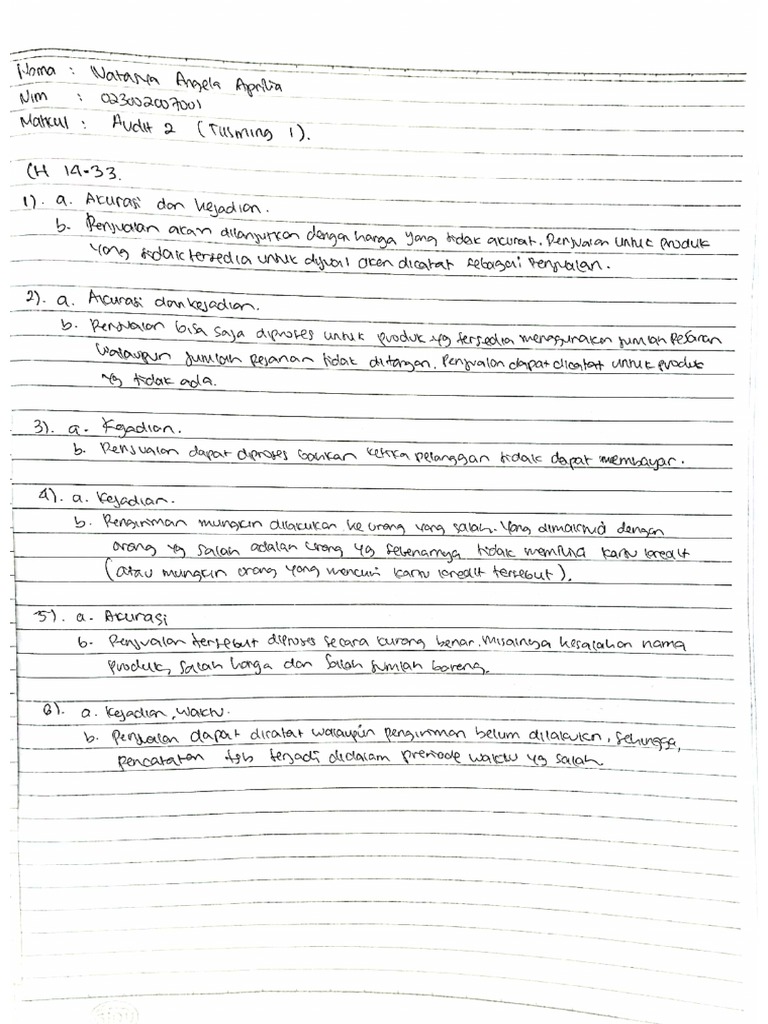 Nama : Natasya Angela Aprilia
Nim : 023002007001
Matkul : Audit 2 (Tusming 1).
CH 14-33.
1). a. Akurasi dan kejadian.
b. Penjualan akan dilanjutkan dengan harga yang tidak akurat. Penjualan untuk produk
yang tidak tersedia untuk dijual akan dicatat sebagai Penjualan.
2). a. Akurasi dan kejadian.
b. Penjualan bisa saja diproses untuk produk yg tersedia menggunakan jumlah pesanan
walaupun jumlah pesanan tidak ditangan. Penjualan dapat dicatat untuk produk
yg tidak ada.
3). a. Kejadian.
b. Penjualan dapat diproses bahkan ketika pelanggan tidak dapat membayar.
4). a. Kejadian.
b. Pengiriman mungkin dilakukan ke orang yang salah. Yang dimaksud dengan
orang yg salah adalah orang yg sebenarnya tidak memiliki kartu kredit
(atau mungkin orang yang mencuri kartu kredit tersebut).
5). a. Akurasi
b. Penjualan tersebut diproses secara kurang benar, misalnya kesalahan nama
produk, salah harga dan salah jumlah barang.
6). a. Kejadian, waktu.
b. Penjualan dapat dicatat walaupun pengiriman belum dilakukan, sehingga,
pencatatan tsb terjadi didalam preriode waktu yg salah.